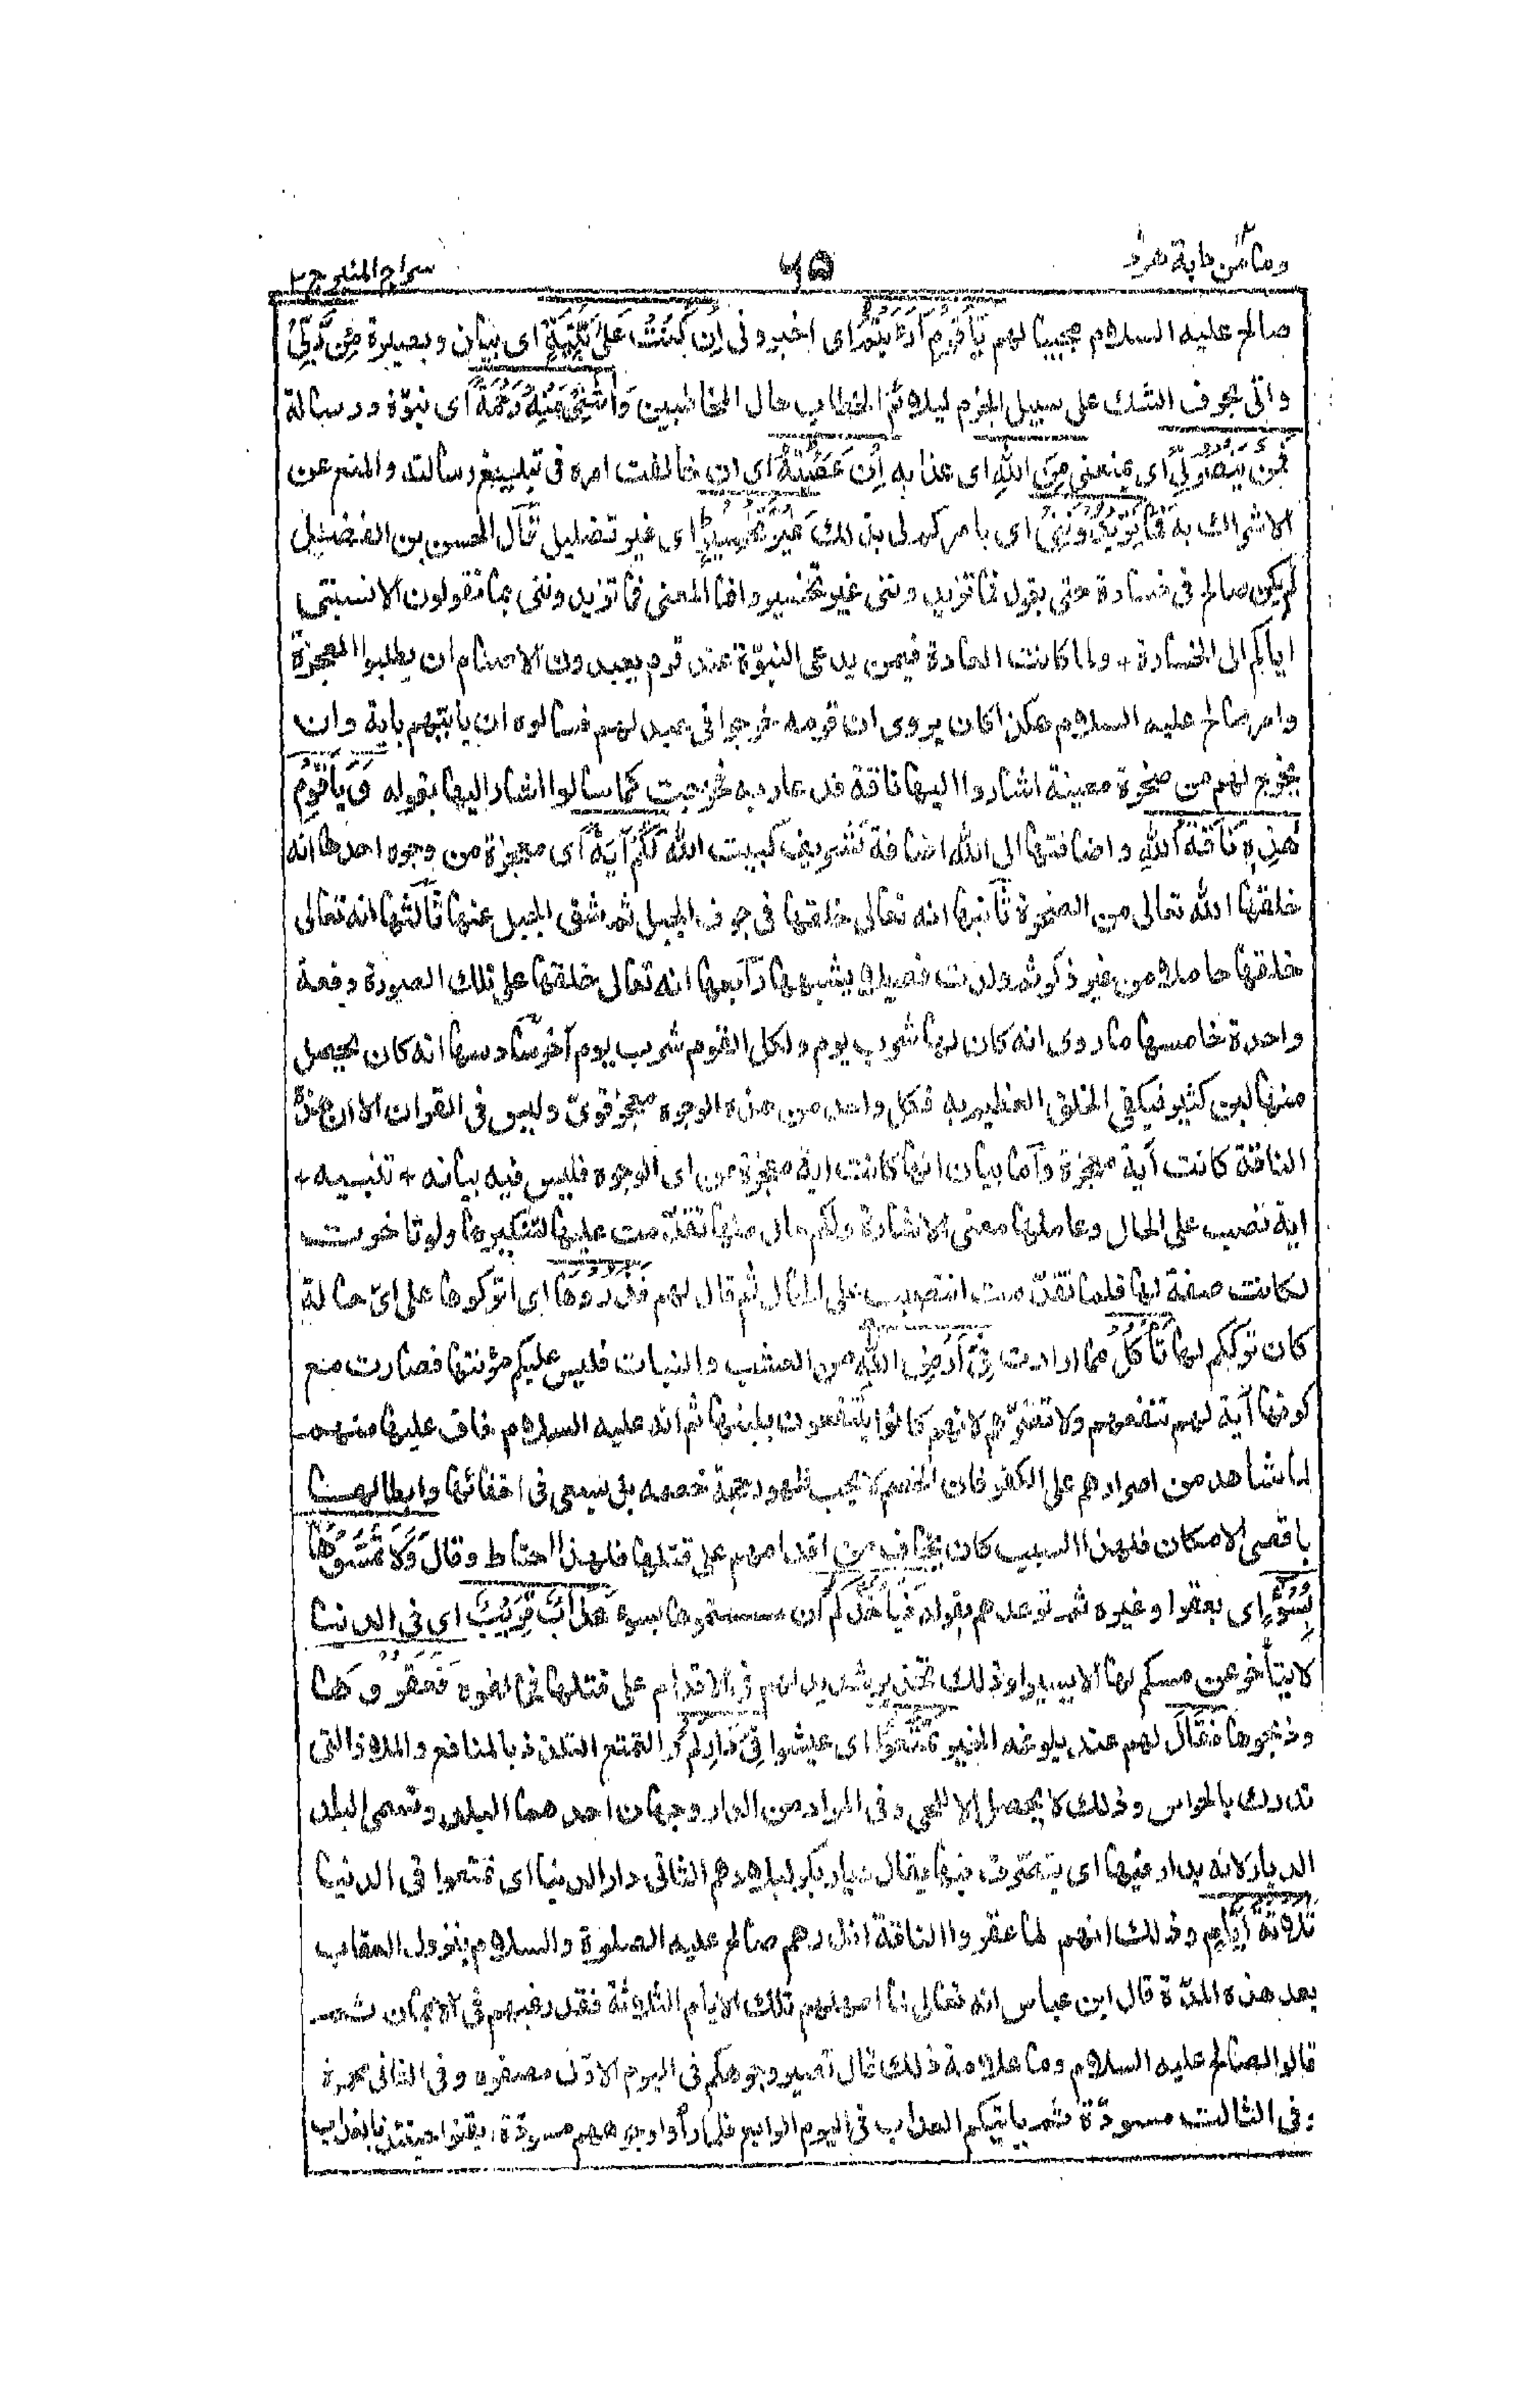 وما من دابة هود
٦٥
سراج المنير ج ٢
صالح عليه السلام مجيبا لهم يَا قَوْمِ أَرَءَيْتُمْ اى اخبرونى إِنْ كُنْتُ عَلَىٰ بَيِّنَةٍ اى بيان وبصيرة مِنْ رَّبِّىْ
واتى بحرف الشك على سبيل الجزم ليلائم الخطاب حال المخاطبين وَاٰتٰىنِىْ مِنْهُ رَحْمَةً اى نبوّة ورسالة
فَمَنْ يَّنْصُرُنِىْ اى يمنعنى مِنَ اللّٰهِ اى عذابه اِنْ عَصَيْتُهٗ اى ان خالفت امره فى تبليغ رسالته والمنع عن
الاشراك به فَمَا تَزِيْدُوْنَنِىْ اى بامركم لى بذلك غَيْرَ تَخْسِيْرٍ اى غير تضليل قال الحسن بن الفضيل
لم يكن صالح فى خسارة حتى يقول فما تزيدوننى غير تخسير وانما المعنى فما تزيدوننى بما تقولون الا نسبتى
اياكم الى الخسارة + ولما كانت العادة فيمن يدعى النبوّة عند قوم يعبدون الاصنام ان يطلبوا المعجزة
وامر صالح عليه السلام هكذا كان يروى ان قومه خرجوا فى عيد لهم فسالوه ان ياتيهم باية وان
يخرج لهم من صخرة معينة اشاروا اليها ناقة فدعا ربه فخرجت كما سالوا اشار اليها بقوله وَيَا قَوْمِ
هٰذِهٖ نَاقَةُ اللّٰهِ واضافتها الى اللّٰه اضافة تشريف كبيت اللّٰه لَكُمْ آيَةً اى معجزة من وجوه احدها انه
خلقها اللّٰه تعالى من الصخرة ثانيها انه تعالى خلقها فى جوف الجبل ثم شق الجبل عنها ثالثها انه تعالى
خلقها حاملا من غير ذكر ثم ولدت فصيلا يشبهها رابعها انه تعالى خلقها على تلك الصورة دفعة
واحدة خامسها ما روى انه كان لها شرب يوم ولكل القوم شرب يوم آخر سادسها انه كان يحصل
منها لبن كثير فيكفى الخلق العظيم به فكل واحد من هذه الوجوه معجز قوىّ وليس فى القران الا ان هذه
الناقة كانت آية معجزة وأما بيان انها كانت اية معجزة من اى الوجوه فليس فيه بيانه + تنبيه +
اية نصب على الحال وعاملها معنى الاشارة ولكم حال منها تقدّمت عليها لتنكيرها ولو تاخرت
لكانت صفة لها فلما تقدّمت انتصب على الحال ثم قال لهم فَذَرُوْهَا اى اتركوها على اىّ حالة
كان ترككم لها تَأْكُلْ مما ارادت فِىْ اَرْضِ اللّٰهِ من العشب والنبات فليس عليكم مؤنتها فصارت مع
كونها آية لهم تنفعهم ولا تضرّهم لانهم كانوا ينتفعون بلبنها ثم انه عليه السلام خاف عليها منهم
لما شاهد من اصرارهم على الكفر فان الخصم لا يحب ظهور حجة خصمه بل يسعى فى اخفائها وابطالها
باقصى الامكان فلهذا السبب كان يخاف من اقدامهم على قتلها فلهذا احتاط وقال وَلَا تَمَسُّوْهَا
بِسُوْءٍ اى بعقر او غيره ثم توعدهم بقوله فَيَأْخُذَكُمْ ان مسستموها بسوء عَذَابٌ قَرِيْبٌ اى فى الدنيا
لا يتأخر عن مسكم لها الا يسيرا وذلك تحذير شديد لهم فى الاقدام على قتلها فخالفوه فَعَقَرُوْهَا
وذبحوها فَقَالَ لهم عند بلوغه الخبر تَمَتَّعُوْا اى عيشوا فِىْ دَارِكُمْ التمتع التلذذ بالمنافع والملاذ التى
تدرك بالحواس وذلك لا يحصل الا للحى وفى المراد من الدار وجهان احدهما البلد وتسمى البلاد
الديار لانه يدار فيها اى يتصرّف فيها يقال ديار بكر لبلادهم الثانى دار الدنيا اى تمتعوا فى الدنيا
ثَلٰثَةَ اَيَّامٍ وذلك انهم لما عقروا الناقة انذرهم صالح عليه الصلوة والسلام بنزول العقاب
بعد هذه المدّة قال ابن عباس انه تعالى لما امهلهم تلك الايام الثلاثة فقد رغبهم فى الايمان ثم
قالوا لصالح عليه السلام وما علامة ذلك قال تصير وجوهكم فى اليوم الاوّل مصفرة وفى الثانى محمرة
وفى الثالث مسودّة ثم ياتيكم العذاب فى اليوم الرابع فلما رأوا وجوههم مسودّة ايقنوا حينئذ بالعذاب